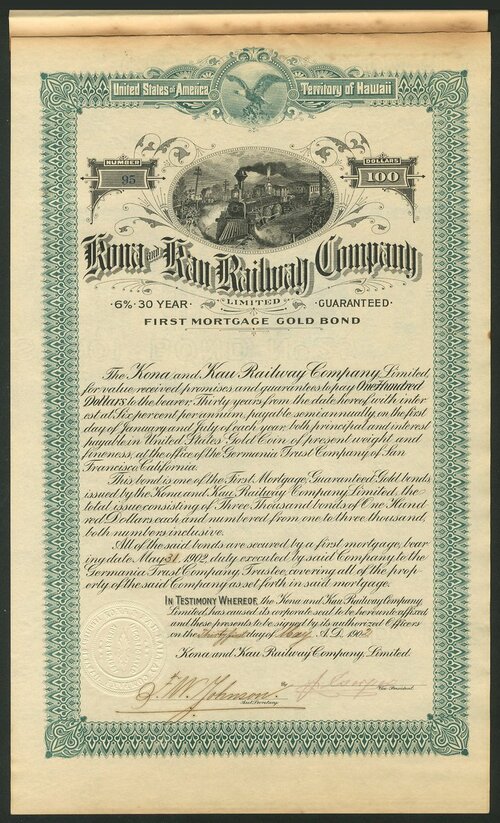 United States of America
Territory of Hawaii
NUMBER
95
DOLLARS
100
Kona and Kau Railway Company
LIMITED
6% 30 YEAR
GUARANTEED
FIRST MORTGAGE GOLD BOND
The Kona and Kau Railway Company, Limited,
for value received promises and guarantees to pay One Hundred
Dollars to the bearer, Thirty years from the date hereof, with inter
est at Six per cent per annum, payable semiannually, on the first
day of January and July of each year, both principal and interest
payable in United States' Gold Coin, of present weight and
fineness, at the office of the Germania Trust Company of San
Francisco, California.
This bond is one of the First Mortgage, Guaranteed Gold bonds
issued by the Kona and Kau Railway Company, Limited, the
total issue consisting of Three Thousand bonds of One Hund
red Dollars each and numbered from one to three thousand,
both numbers inclusive.
All of the said bonds are secured by a first mortgage, bear
ing date, May 31 1902, duly executed by said Company, to the
Germania Trust Company, Trustee, covering all of the prop
erty of the said Company as set forth in said mortgage.
IN TESTIMONY WHEREOF, the Kona and Kau Railway Company,
Limited, has caused its corporate seal to be hereunto affixed
and these presents to be signed by its authorized Officers
on the Thirty first day of May A.D. 1902
Kona and Kau Railway Company, Limited.
Johnson
by
Secretary.
Vice President.